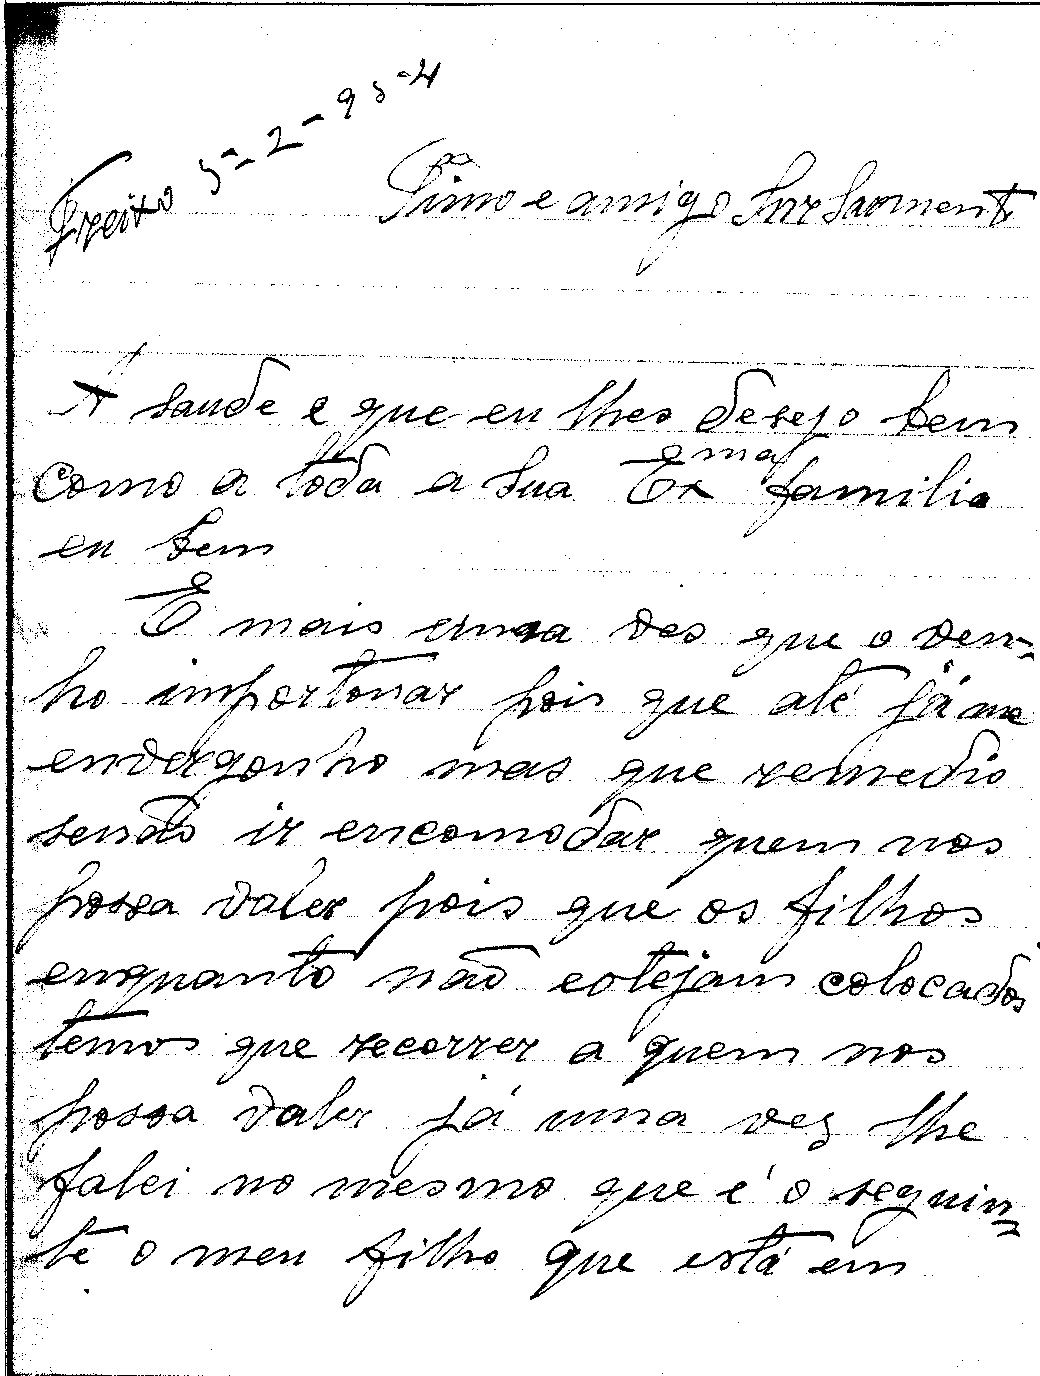 Freixo 5-2-95-4
Primo e amigo Snr Sarmento
A saude é que eu lhes desejo bem
como a toda a sua Exma familia
eu bem
É mais uma ves que o ven-
ho importonar pois que até já me
envergonho mas que remedio
senão ir encomodar quem nos
possa valer pois que os filhos
enquanto não estejam colocados
temos que recorrer a quem nos
possa valer já uma vez lhe
falei no mesmo que é o seguin-
te o meu filho que está em